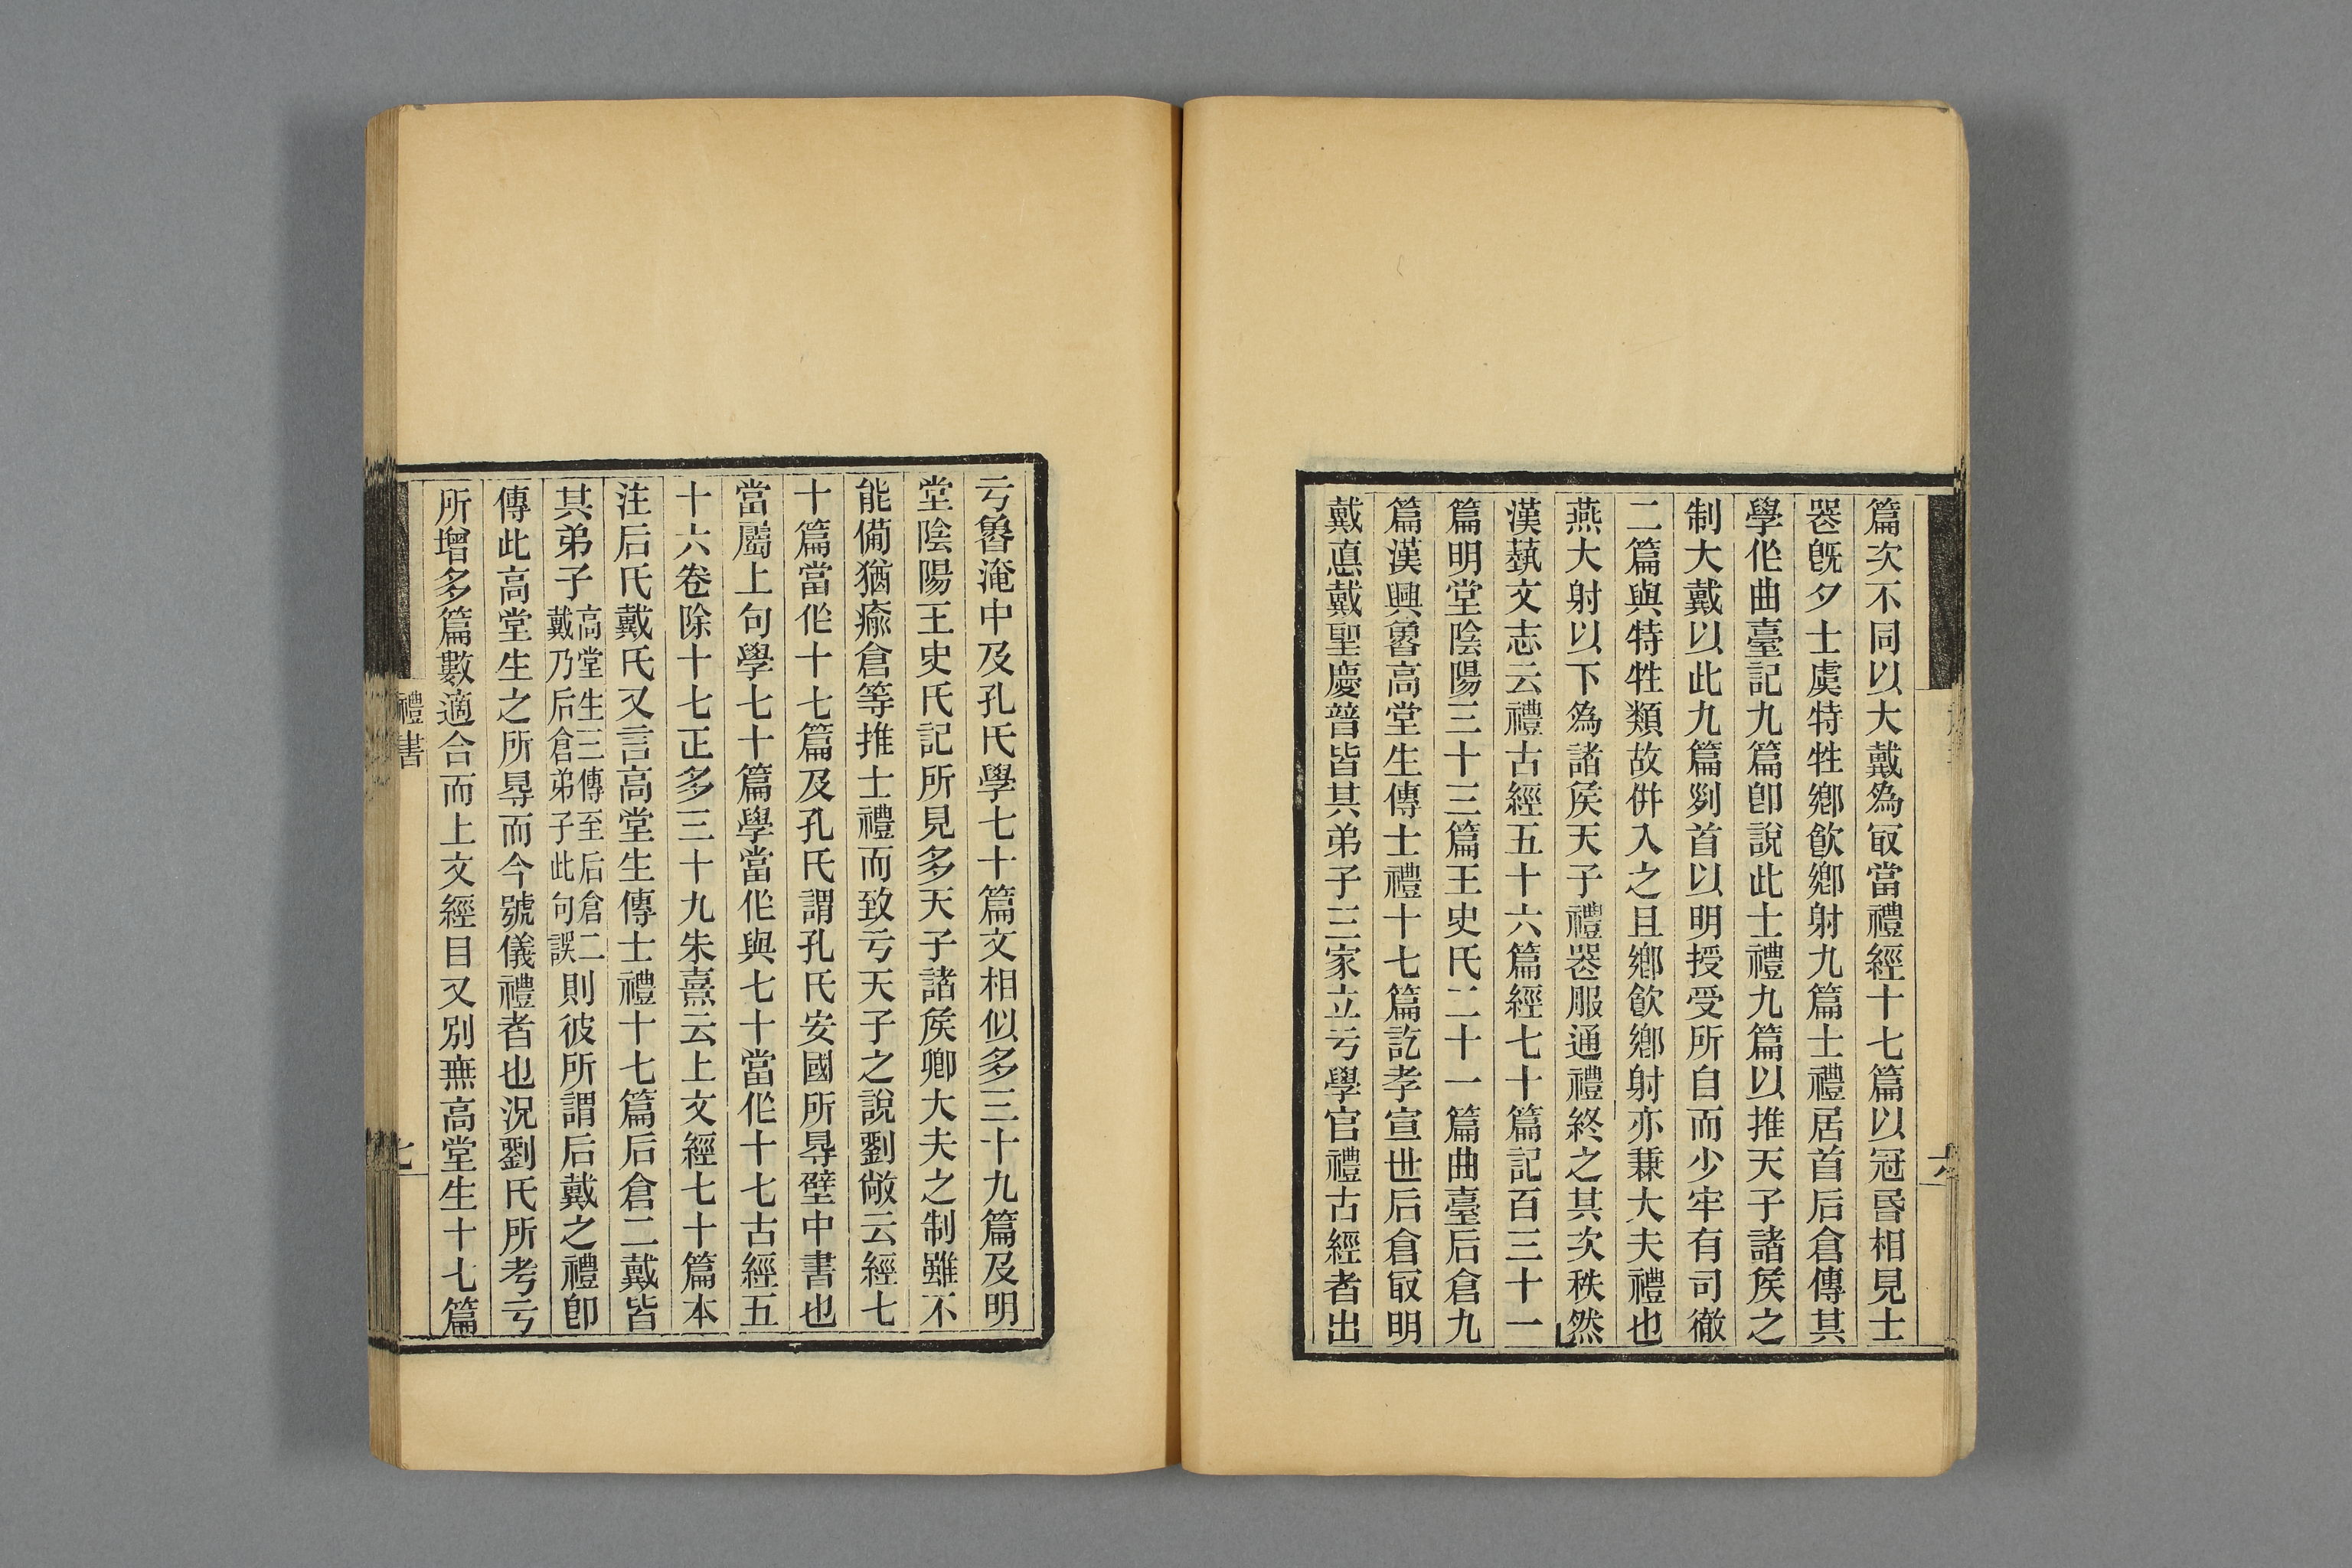 篇次不同以大戴為㝡當禮經十七篇以冠昏相見士
喪旣夕士虞特牲鄕飮鄕射九篇士禮居首后倉傳其
學作曲臺記九篇卽說此士禮九篇以推天子諸矦之
制大戴以此九篇列首以明授受所自而少牢有司徹
二篇與特牲類故併入之且鄕飮鄕射亦兼大夫禮也
燕大射以下為諸矦天子禮喪服通禮終之其次秩然
漢蓺文志云禮古經五十六篇經七十篇記百三十一
篇明堂陰陽三十三篇王史氏二十一篇曲臺后倉九
篇漢興魯高堂生傳士禮十七篇訖孝宣世后倉㝡明
戴悳戴聖慶普皆其弟子三家立亏學官禮古經者出
亏魯淹中及孔氏學七十篇文相似多三十九篇及明
堂陰陽王史氏記所見多天子諸矦卿大夫之制雖不
能備猶瘉倉等推士禮而致亏天子之說劉敞云經七
十篇當作十七篇及孔氏謂孔氏安國所㝵壁中書也
當屬上句學七十篇學當作與七十當作十七古經五
十六卷除十七正多三十九朱熹云上文經七十篇本
注后氏戴氏又言高堂生傳士禮十七篇后倉二戴皆
其弟子高堂生三傳至后倉二戴乃后倉弟子此句誤則彼所謂后戴之禮卽
傳此高堂生之所㝵而今號儀禮者也況劉氏所考亏
所增多篇數適合而上文經目又別無高堂生十七篇
禮書
七